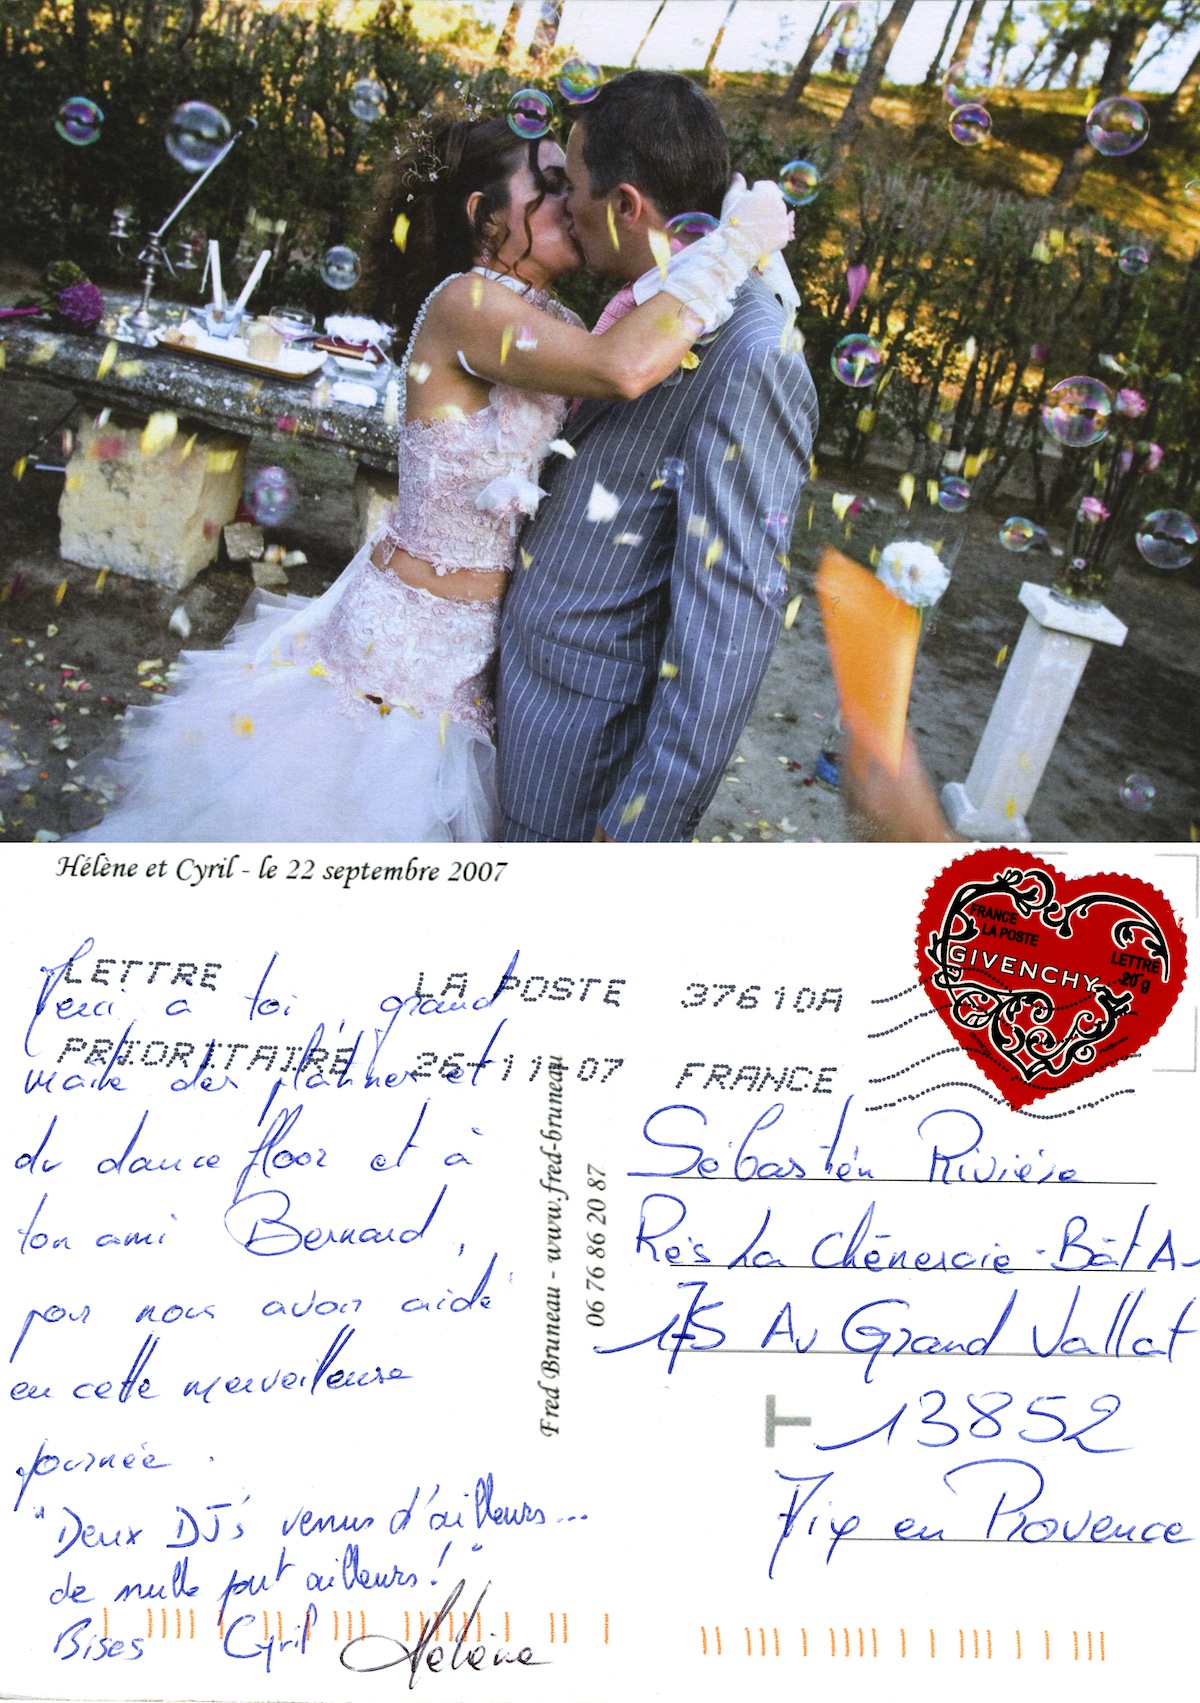 Hélène et Cyril - le 22 septembre 2007
FRANCE
LA POSTE
GIVENCHY
LETTRE
20 g
LETTRE LA POSTE 37610A
PRIORITAIRE 26-11-07 FRANCE
Merci à toi, grand
maître des platines et
du dance floor et à
ton ami Bernard,
pour nous avoir aidé
en cette merveilleuse
journée.
"Deux DJ's venus d'ailleurs...
de nulle part ailleurs!"
Bises Cyril Hélène
Fred Bruneau - www.fred-bruneau
06 76 86 20 87
Sébastien Rivière
Rés La Chêneraie - Bât A
175 Av Grand Vallat
T
13852
Aix en Provence